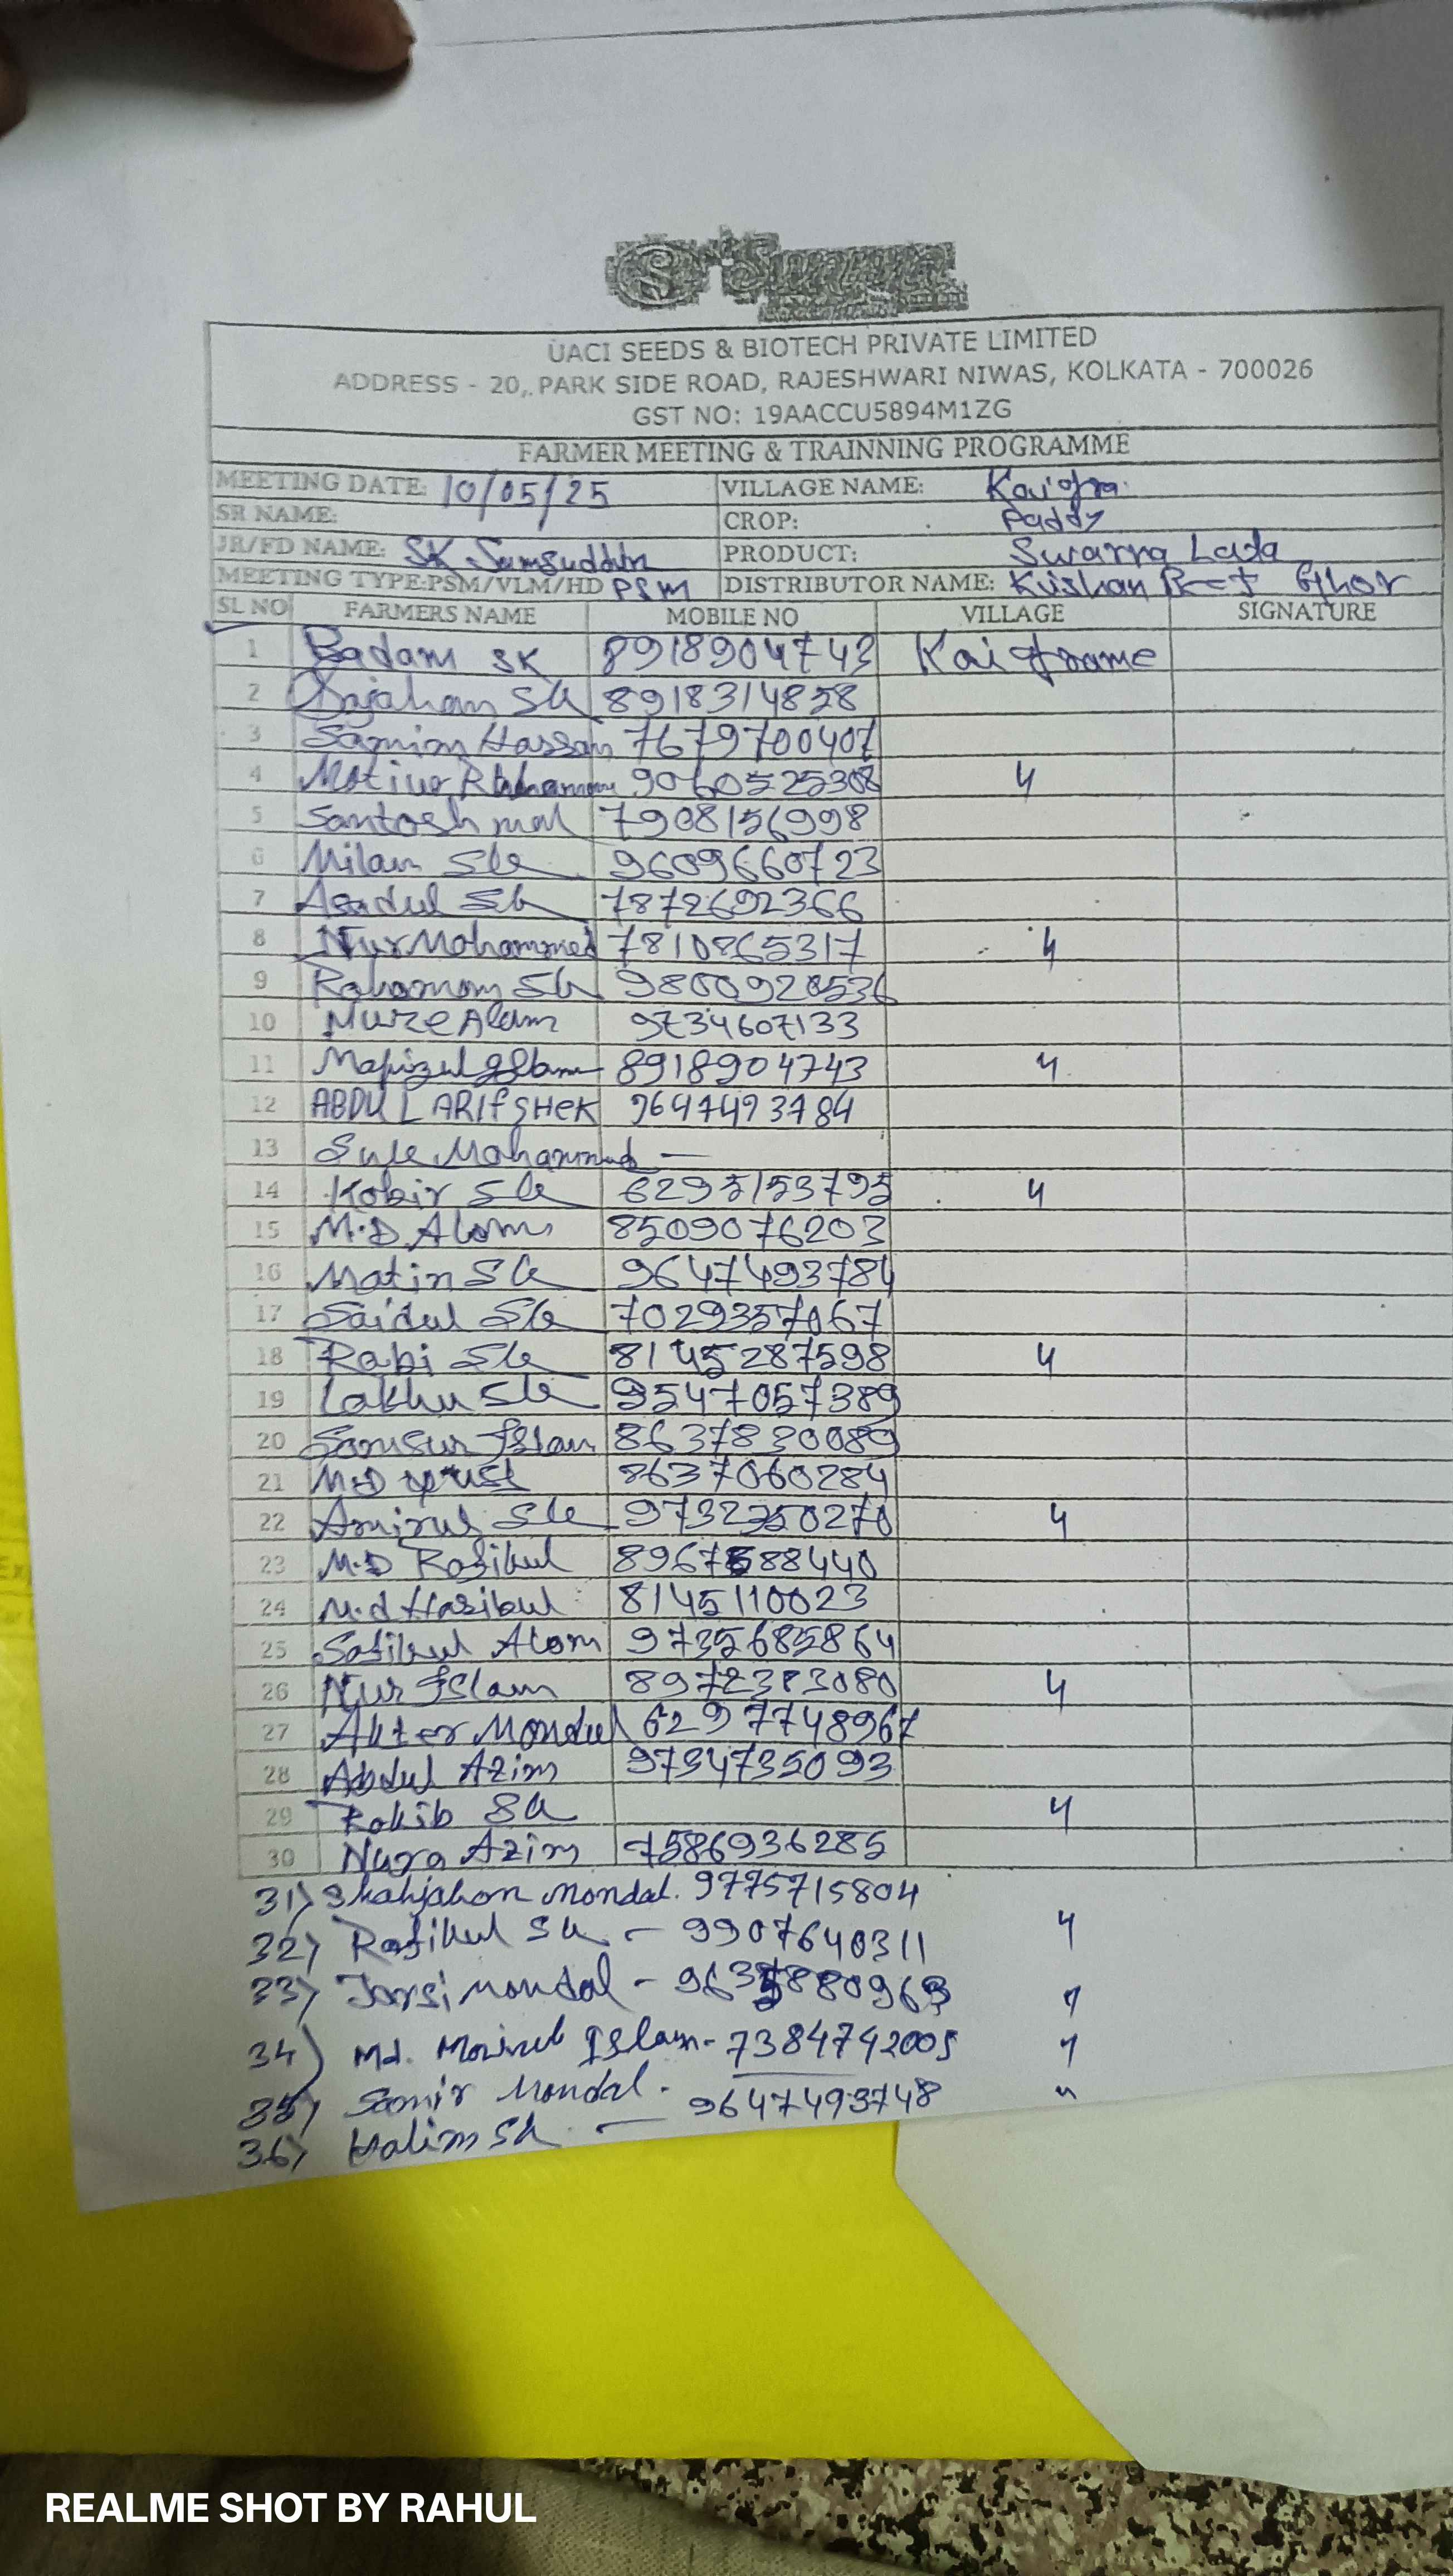 UACI SEEDS & BIOTECH PRIVATE LIMITED
ADDRESS - 20, PARK SIDE ROAD, RAJESHWARI NIWAS, KOLKATA - 700026
GST NO: 19AACCU5894M1ZG
FARMER MEETING & TRAINNING PROGRAMME
MEETING DATE: 10/05/25 VILLAGE NAME:
SR NAME: CROP: Paddy
JR/FD NAME: SK Samsuddin PRODUCT: Swarna Lada
MEETING TYPE:PSM/VLM/HD PSM DISTRIBUTOR NAME: Krishan Ghor
SL NO FARMERS NAME MOBILE NO VILLAGE SIGNATURE
1 Badam SK 8918904743 Kaigrame
2 Sajahan Sk 8918314828
3 Samim Hassan 7679700407
4 Motiur Rahaman 9060525308 "
5 Santosh mal 7908156998
6 Milan Sk 9609660723
7 Asadul Sk 7872692366
8 Nur Mohammed 7810865317 "
9 Rahaman Sk 9800920536
10 Nure Alam 9734607133
11 Mafizul Islam 8918904743 "
12 ABDUL ARIF SHEK 9647493784
13 Mohammad —
14 Kobir Sk 6295153795 "
15 M.D Alom 8509076203
16 Matin Sk 9647493784
17 Saidul Sk 7029357067
18 Rabi Sk 8145287598 "
19 Lakhu Sk 9547057389
20 Samsur Islam 8637830089
21 M.D 8637060284
22 Amirul Sk 9732250270 "
23 M.D Rafikul 8967588440
24 M.d Hasibul 8145110023
25 Safikul Alom 9735685864
26 Nur Islam 8972383080 "
27 Akter Mondul 6297748967
28 Abdul Azim 9734735093
29 Rakib Sk "
30 Nura Azim 7586936285
31) Shahjahon Mondal. 9775715804
32) Rafikul Sk – 9907640311 "
33) mondal – "
34) Md. Islam- 7384742005 "
35) Samir Mondal. 9647493748 "
36) Halim Sk. —
REALME SHOT BY RAHUL